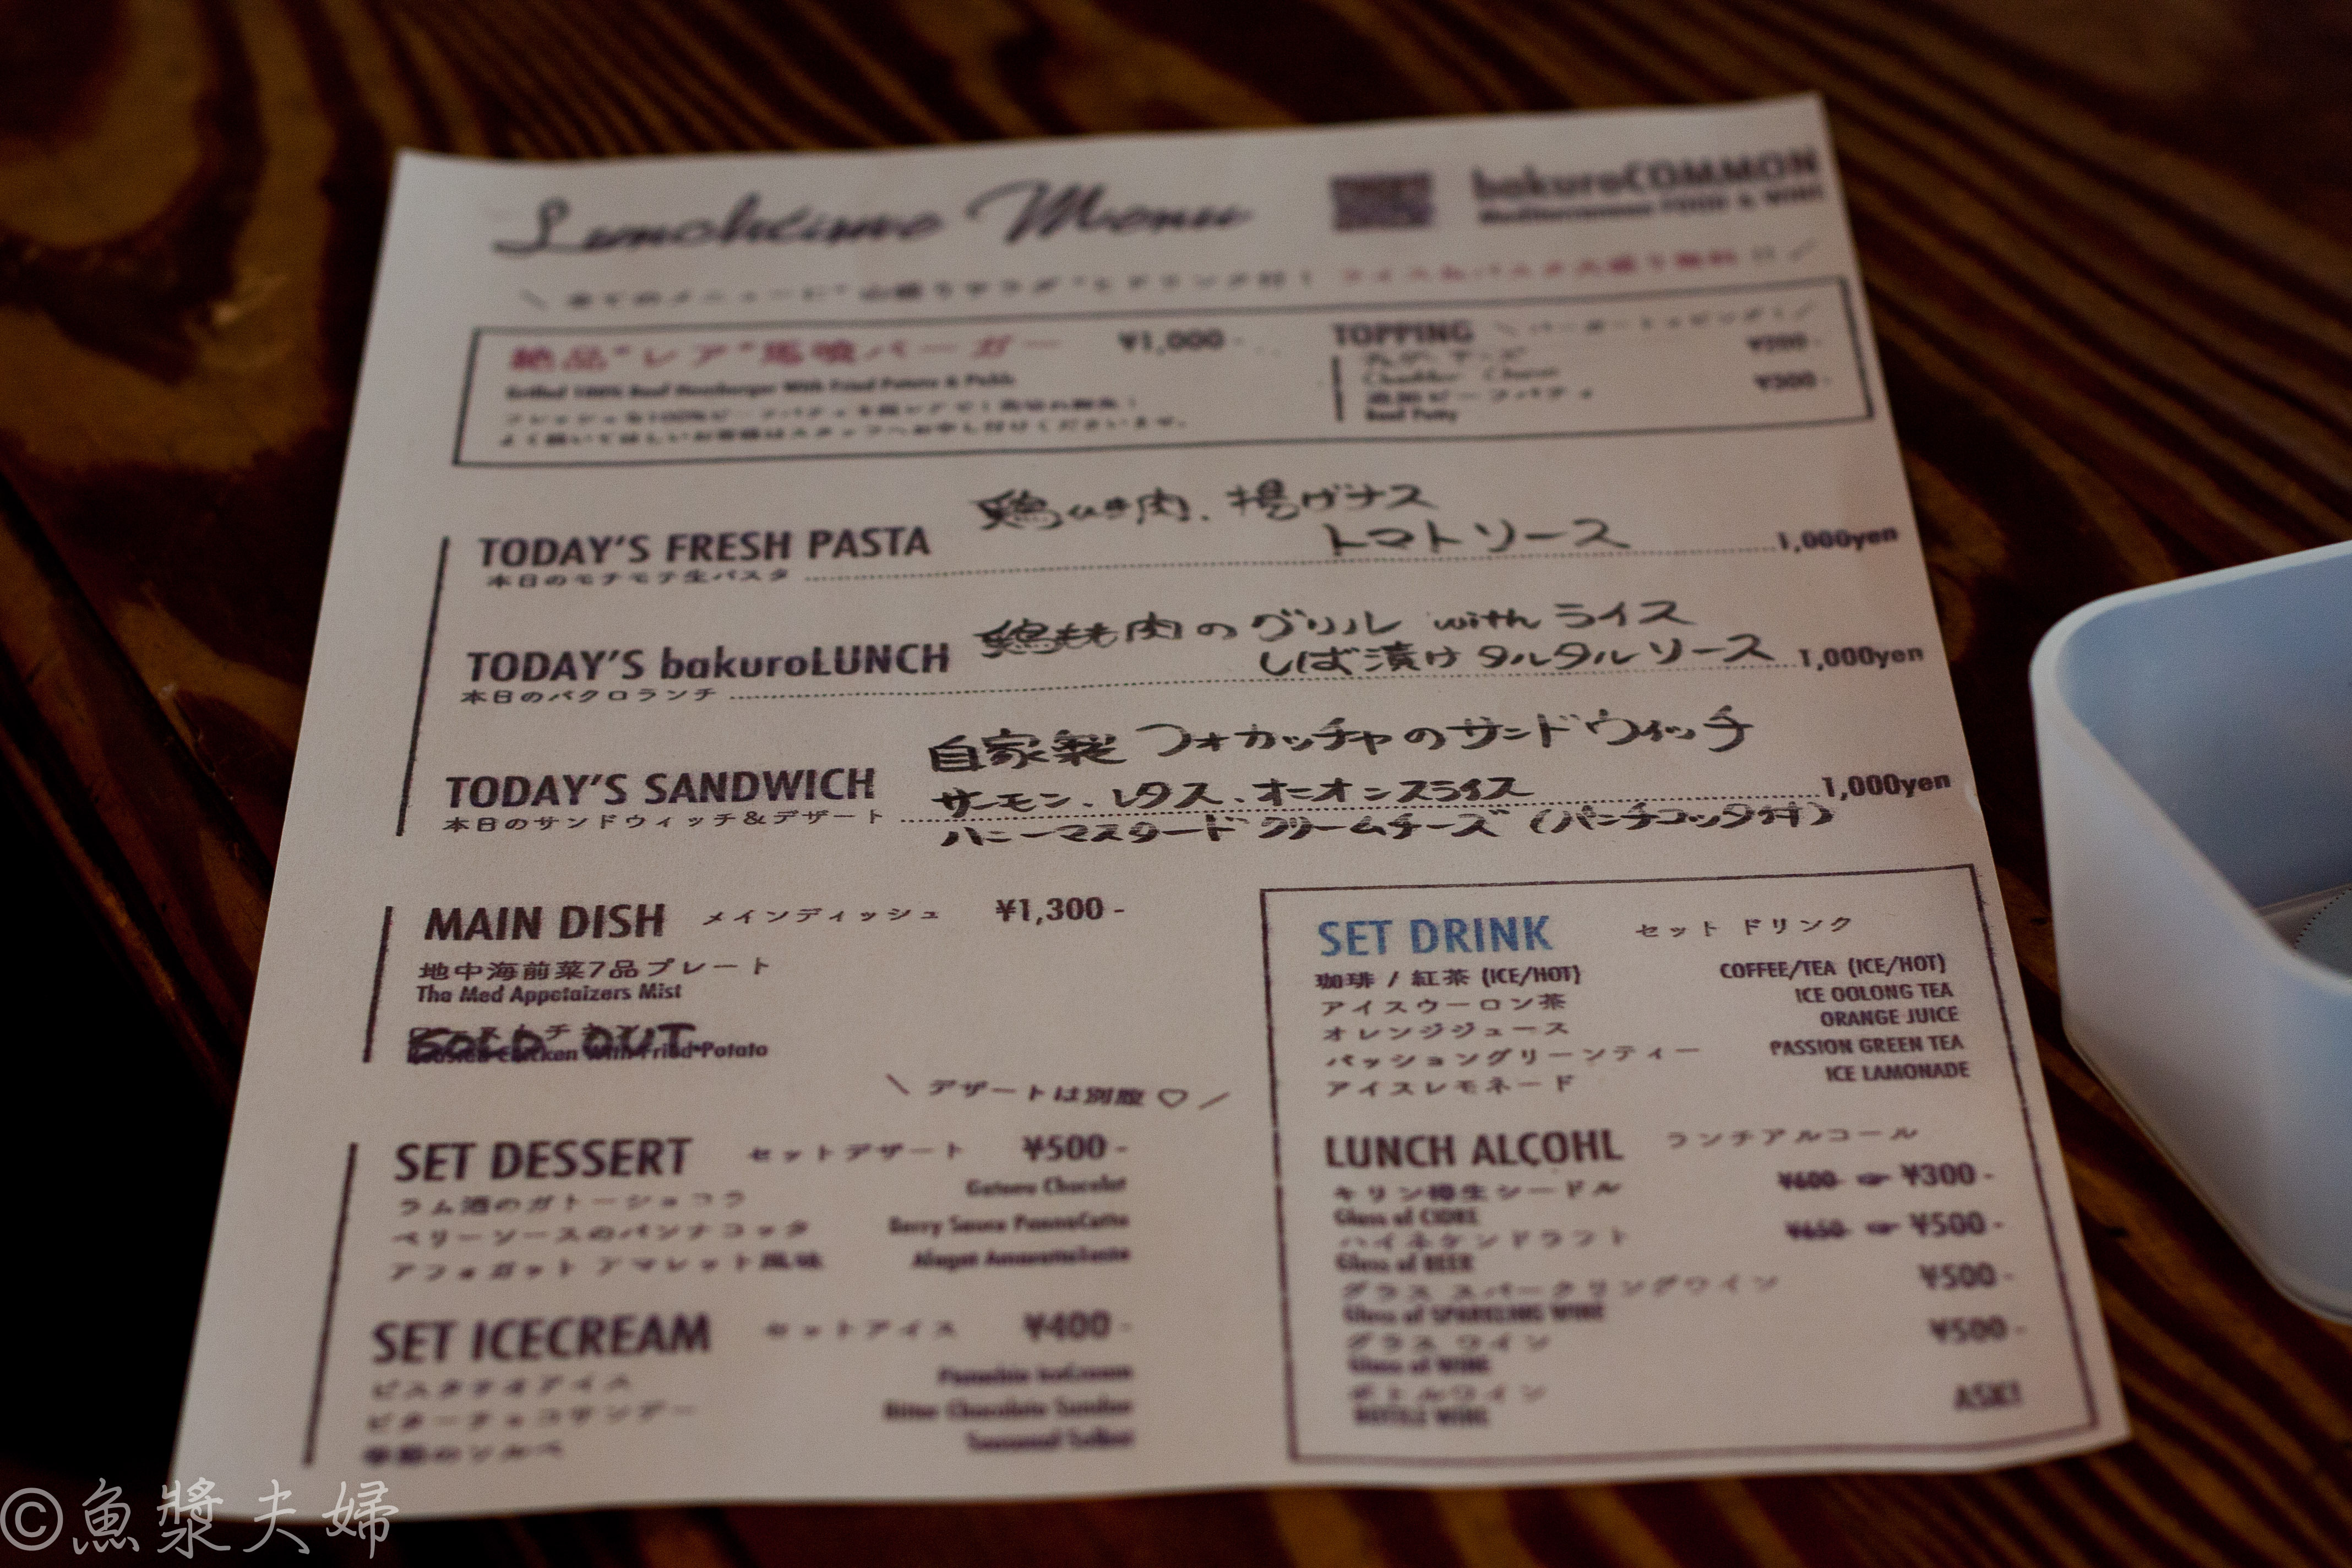 Lunchtime Menu
bakuroCOMMON
Mediterranean FOOD & WINE
絶品"レア"馬喰バーガー ¥1,000-
Grilled 100% Beef Hamburger With Fried Potato & Pickls
TOPPING
¥200-
Cheddar Cheese
¥300-
Beef Patty
鶏ひき肉、揚げナス
TODAY'S FRESH PASTA トマトソース 1,000yen
本日のモチモチ生パスタ
鶏もも肉のグリル with ライス
TODAY'S bakuroLUNCH しば漬けタルタルソース 1,000yen
本日のバクロランチ
自家製フォカッチャのサンドウィッチ
TODAY'S SANDWICH サーモン、レタス、オニオンスライス 1,000yen
本日のサンドウィッチ&デザート ハニーマスタードクリームチーズ (パンナコッタ付)
MAIN DISH メインディッシュ ¥1,300-
地中海前菜7品プレート
Tha Med Appetaizers Mist
SOLD OUT
Chicken With Fried Potato
\ デザートは別腹♡ /
SET DESSERT セットデザート ¥500-
ラム酒のガトーショコラ Gateau Chocolat
ベリーソースのパンナコッタ Berry Sauce PannaCotta
アフォガット アマレット風味
SET ICECREAM セットアイス ¥400-
ピスタチオアイス Pistachio IceCream
ビターチョコサンデー Bitter Chocolate Sundae
季節のソルベ
SET DRINK セット ドリンク
珈琲 / 紅茶 (ICE/HOT) COFFEE/TEA (ICE/HOT)
アイスウーロン茶 ICE OOLONG TEA
オレンジジュース ORANGE JUICE
パッショングリーンティー PASSION GREEN TEA
アイスレモネード ICE LAMONADE
LUNCH ALCOHL ランチアルコール
キリン樽生シードル ¥600- ¥300-
Glass of CIDRE
ハイネケンドラフト ¥650- ¥500-
Glass of BEER
グラス スパークリングワイン ¥500-
Glass of SPARKLING WINE
グラス ワイン ¥500-
Glass of WINE
ボトルワイン ASK!
BOTTLE WINE
©魚漿夫婦